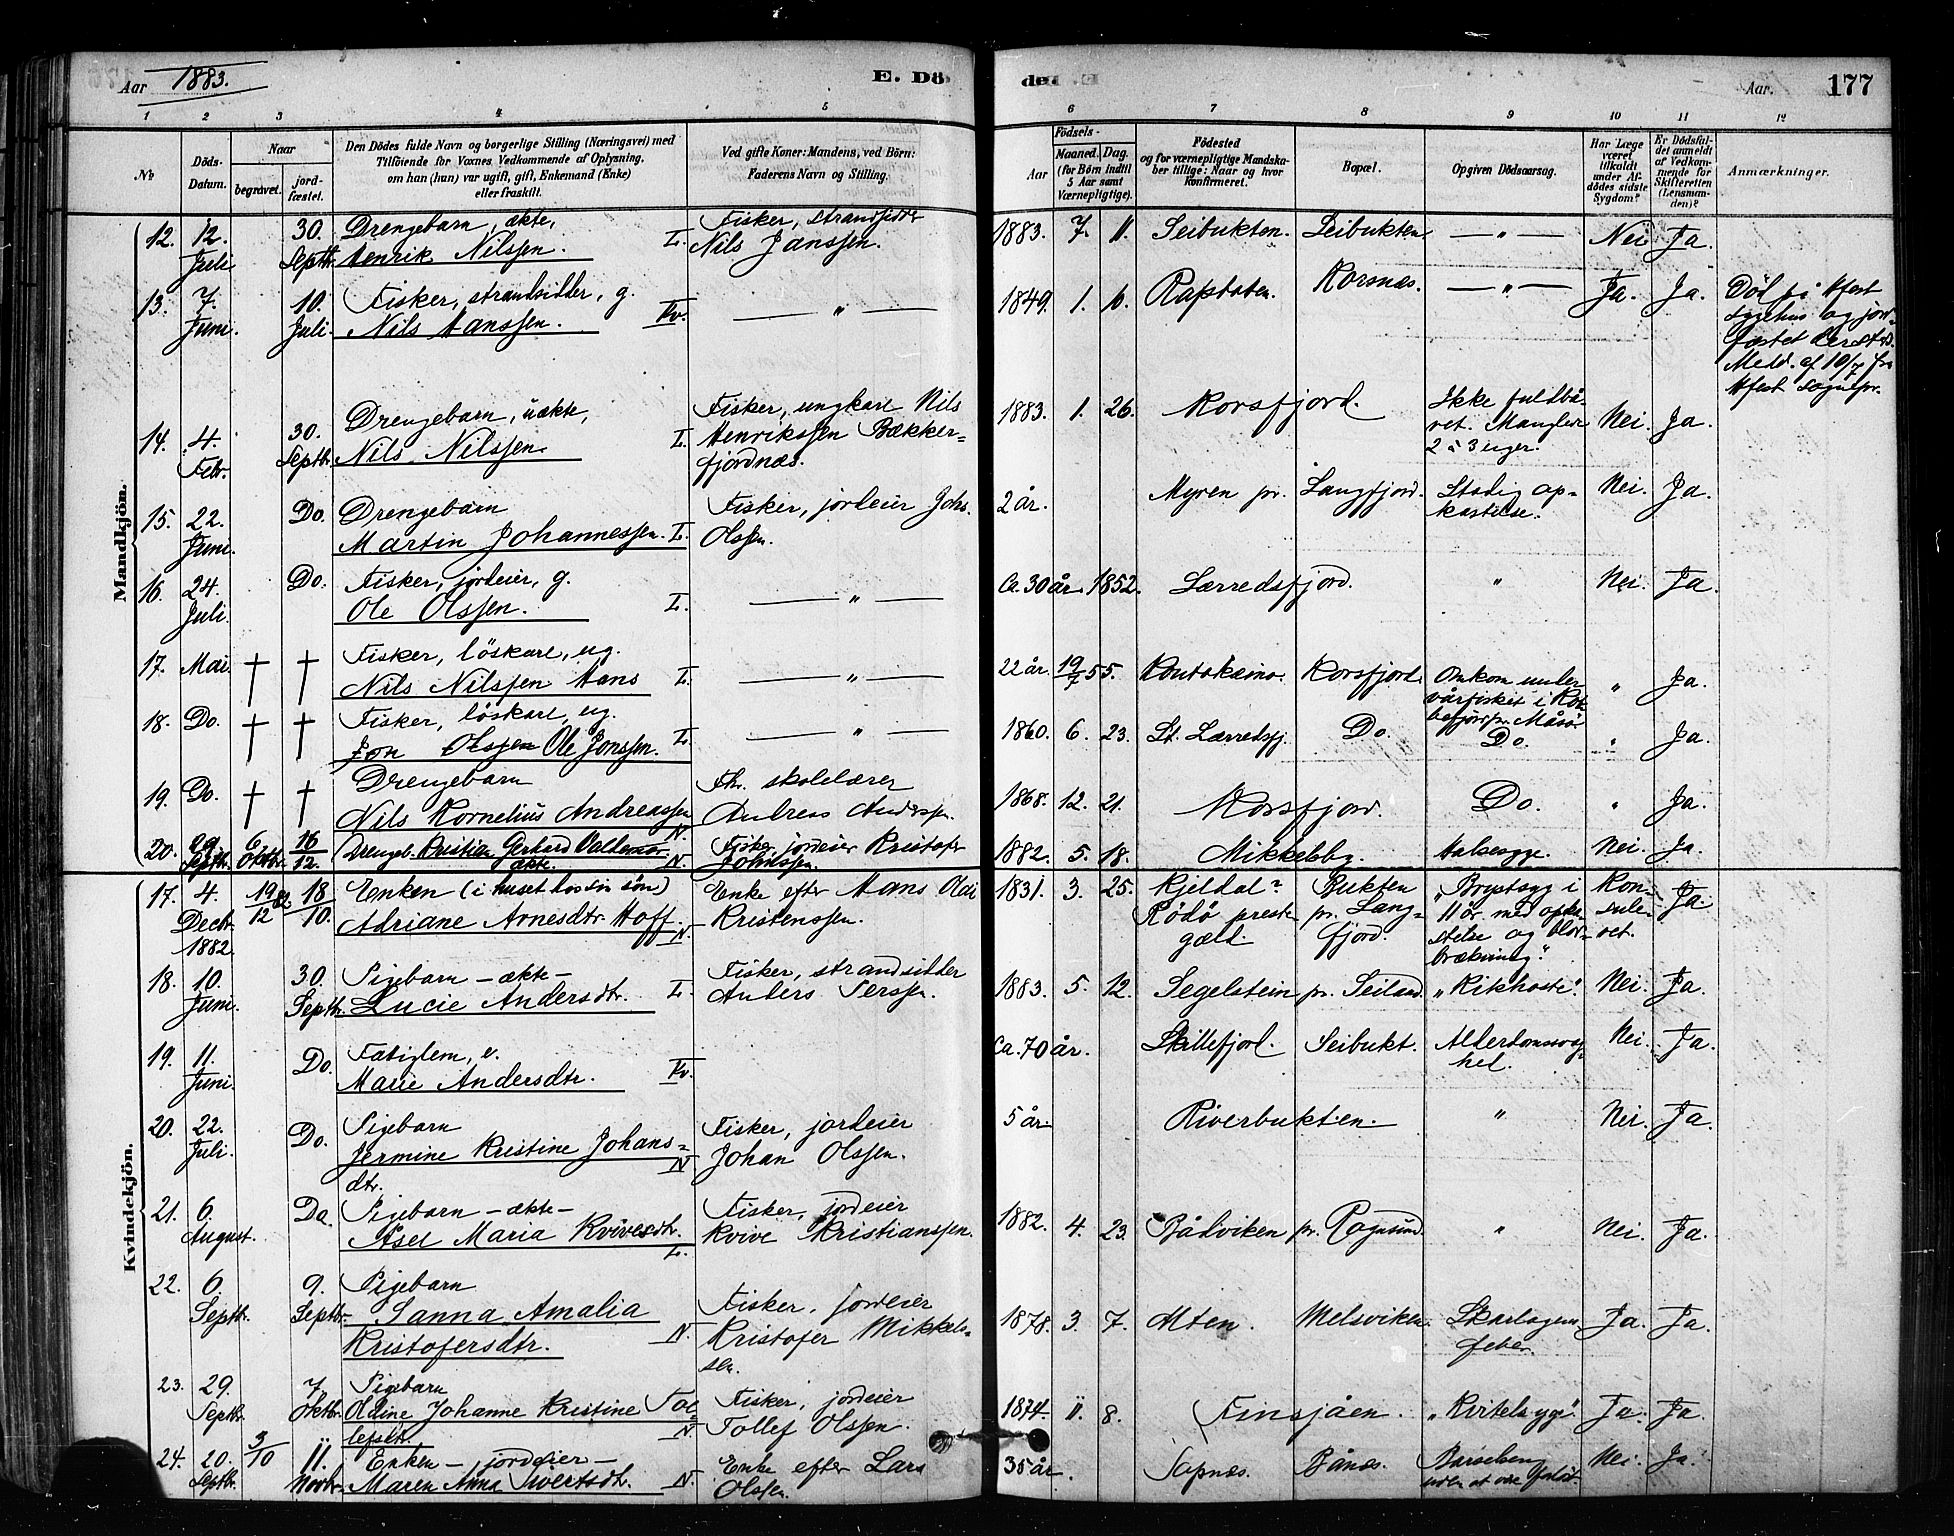 Aar 1883. E. Dö
den. Aar. 177
1 2 3 4 5 6 7 8 9 10 11 12
No Döds-Datum. Naar begravet. jordfæstet. Den Dödes fulde Navn og borgerlige Stilling (Næringsvei) med Tilföiende for Voxnes Vedkommende af Oplysning, om han (hun) var ugift, gift, Enkemand (Enke) eller fraskilt. Ved gifte Koner: Mandens, ved Börn: Faderens Navn og Stilling. Födsels- Aar Maaned. Dag. (for Börn indtil 5 Aar samt Værnepligtige). Födested og for værnepligtige Mandskaber tillige: Naar og hvor Konfirmeret. Bopæl. Opgiven Dödsaarsag. Har Læge været tilkaldt under Afdödes sidste Sygdom? Er Dödsfaldet anmeldt af Vedkommende for Skifteretten (Lensmanden)? Anmærkninger.
Mandkjön.
12. 12. Juli 30. Septbr. Drengebarn, ækte, Henrik Nilssen. L. Fisker, strandsidder Nils Janssen. 1883. 7. 11. Seibukten. Seibukten. — " — Nei Ja.
13. 7. Juni. 10. Juli. Fisker, strandsidder, g. Nils Hanssen. Kv. — " — 1849. 1. 6. Korsnæs. — " — Ja. Ja. Död på Hfest sygehus og jordfæstet dersted. Meld. af 10/7 fra Hfest sognepr.
14. 4. Febr. 30. Septbr. Drengebarn, uækte, Nils Nilssen. L. Fisker, ungkarl Nils Henrikssen Bækkerfjordnæs. 1883. 1. 26. Korsfjord. Ikke fuldbåret. Manglede 2 à 3 uger. Nei. Ja.
15. 22. Juni. Do. Drengebarn Martin Johannessen. L. Fisker, jordeier Johs. Olssen. 2 år. Myren pr. Langfjord. Stadig opkastelse. Nei. Ja.
16. 24. Juli. Do. Fisker, jordeier, g. Ole Olssen. L. — " — Ca. 30 år. 1852. Lærredsfjord. " Nei. Ja.
17. Mai. † † Fisker, löskarl, ug. Nils Nilssen Hans L. — " — 22 år. 19/7 55. Koutokeino. Korsfjord. Omkom under vårfisket i pr. Måsö. " Ja.
18. Do. † † Fisker, löskarl, ug. Jon Olssen Ole Jonssen. L. — " — 1860. 6. 23. St. Lærredsfj. Do. Do. " Ja.
19. Do. † † Drengebarn Nils Kornelius Andreassen N. Fh. skolelærer Andreas Anderssen. 1868. 12. 21. Korsfjord. Do. " Ja.
20. 29. Septbr. 6. Oktbr. 16/12. Drengeb. Kristian Gerhard Valdemar ækte. N. Fisker, jordeier Kristofer Johnssen. 1882. 5. 18. Mikkelsby. Halsesyge. Nei. Ja.
Kvindekjön.
17. 4. Decbr. 1882. 19/12 82 18/10. Enken (i huset hos sin sön) Adriane Arnesdtr. Hoff. N. Enke efter Hans Olai Kristenssen. 1831. 3. 25. Kjeldal? Rödö prestegæld. Bukten pr. Langfjord. "Brystsyg i 11 år med opkastelse og blodbrækning". Konsuleret. Ja.
18. 10. Juni. 30. Septbr. Pigebarn – ækte – Lucie Andersdtr. L. Fisker, strandsidder Anders Perssen. 1883. 5. 12. Segelstein pr. Seiland. "Kikhoste". Nei. Ja.
19. 11. Juni. Do. Fatiglem, e. Marie Andersdtr. Kv. Ca. 70 år. Skillefjord. Seibukt. Alderdomssvaghed. Nei. Ja.
20. 22. Juli. Do. Pigebarn Jermine Kristine Johansdtr. N. Fisker, jordeier Johan Olssen. 5 år. Riverbukten. " Nei. Ja.
21. 6. August. Do. Pigebarn – ækte – Asel Maria Kvivesdtr. L. Fisker, jordeier Kvive Kristianssen. 1882. 4. 23. Bådviken pr. Rognsund. " Nei. Ja.
22. 6. Septbr. 9. Septbr. Pigebarn Sanna Amalia Kristofersdtr. N. Fisker, jordeier Kristofer Mikkelssen. 1878. 3. 7. Alten. Melsviken. Skarlagensfeber. Ja. Ja.
23. 29. Septbr. 7. Oktbr. Pigebarn Oldine Johanne Kristine Tollefsdtr. N. Fisker, jordeier Tollef Olssen. 1874. 11. 8. Finsjåen. "Kvitelsyge". Ja. Ja.
24. 20. Septbr. 3/10 11. Novbr. Enken – jordeier – Maren Anna Sivertsdtr. N. Enke efter Lars Olssen. 35 år. Sopnæs. Bånæs. Barselseng Nei. Ja.